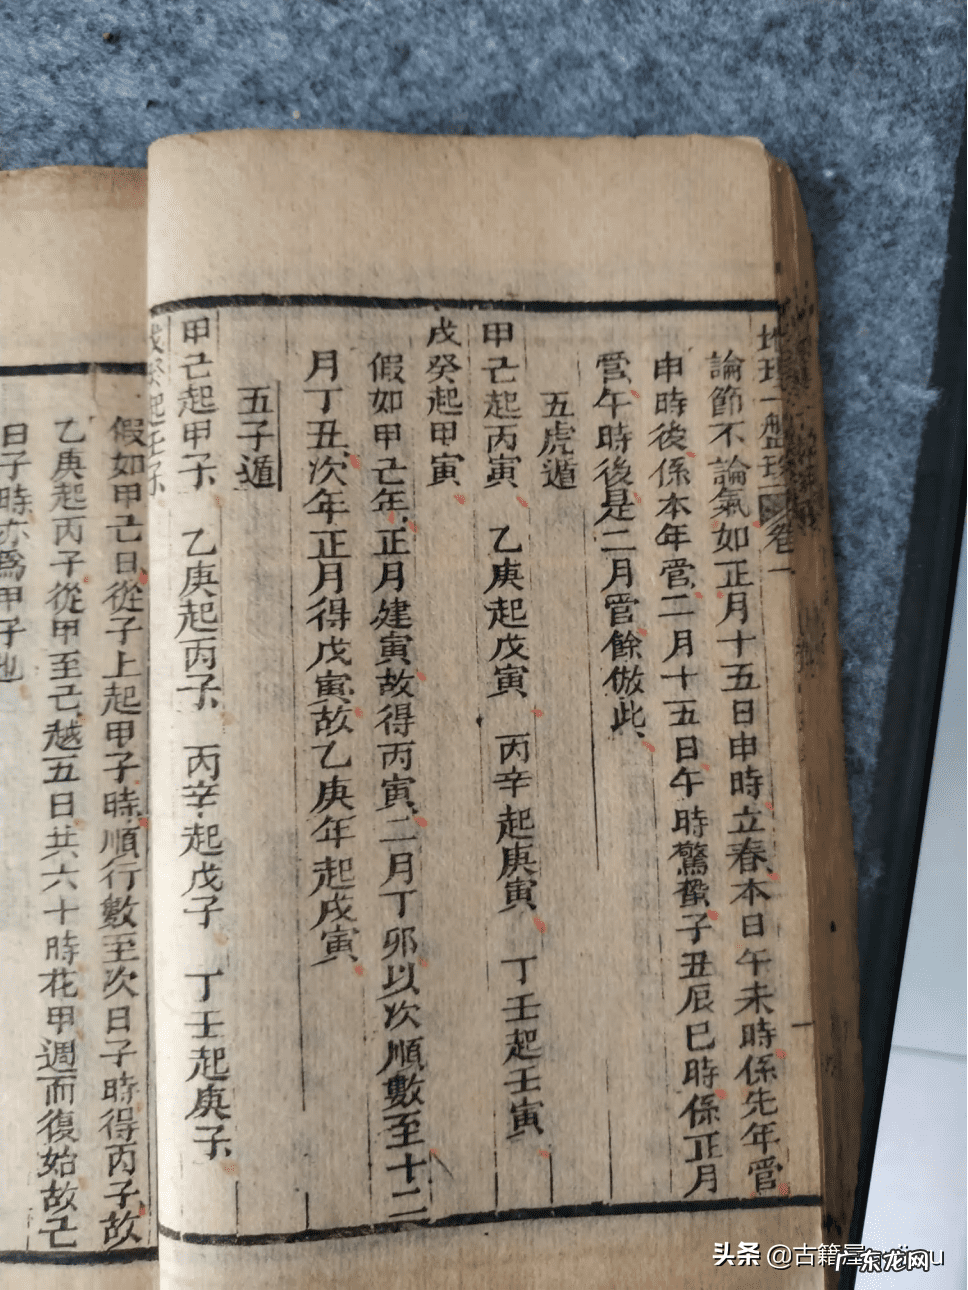 地理一盤珠 卷一
論節不論氣如正月十五日申時立春本日午未時係先年管
申時後係本年管二月十五日午時驚蟄子丑辰巳時係正月
管午時後是二月管餘倣此
五虎遁
甲己起丙寅 乙庚起戊寅 丙辛起庚寅 丁壬起壬寅
戊癸起甲寅
假如甲己年正月建寅故得丙寅二月丁卯以次順數至十二
月丁丑次年正月得戊寅故乙庚年起戊寅
五子遁
甲己起甲子 乙庚起丙子 丙辛起戊子 丁壬起庚子
戊癸起壬子
假如甲己日從子上起甲子時順行數至次日子時得丙子故
乙庚起丙子從甲至己越五日共六十時花甲週而復始故己
日子時亦爲甲子也
头条 @古籍屋
广东龙网